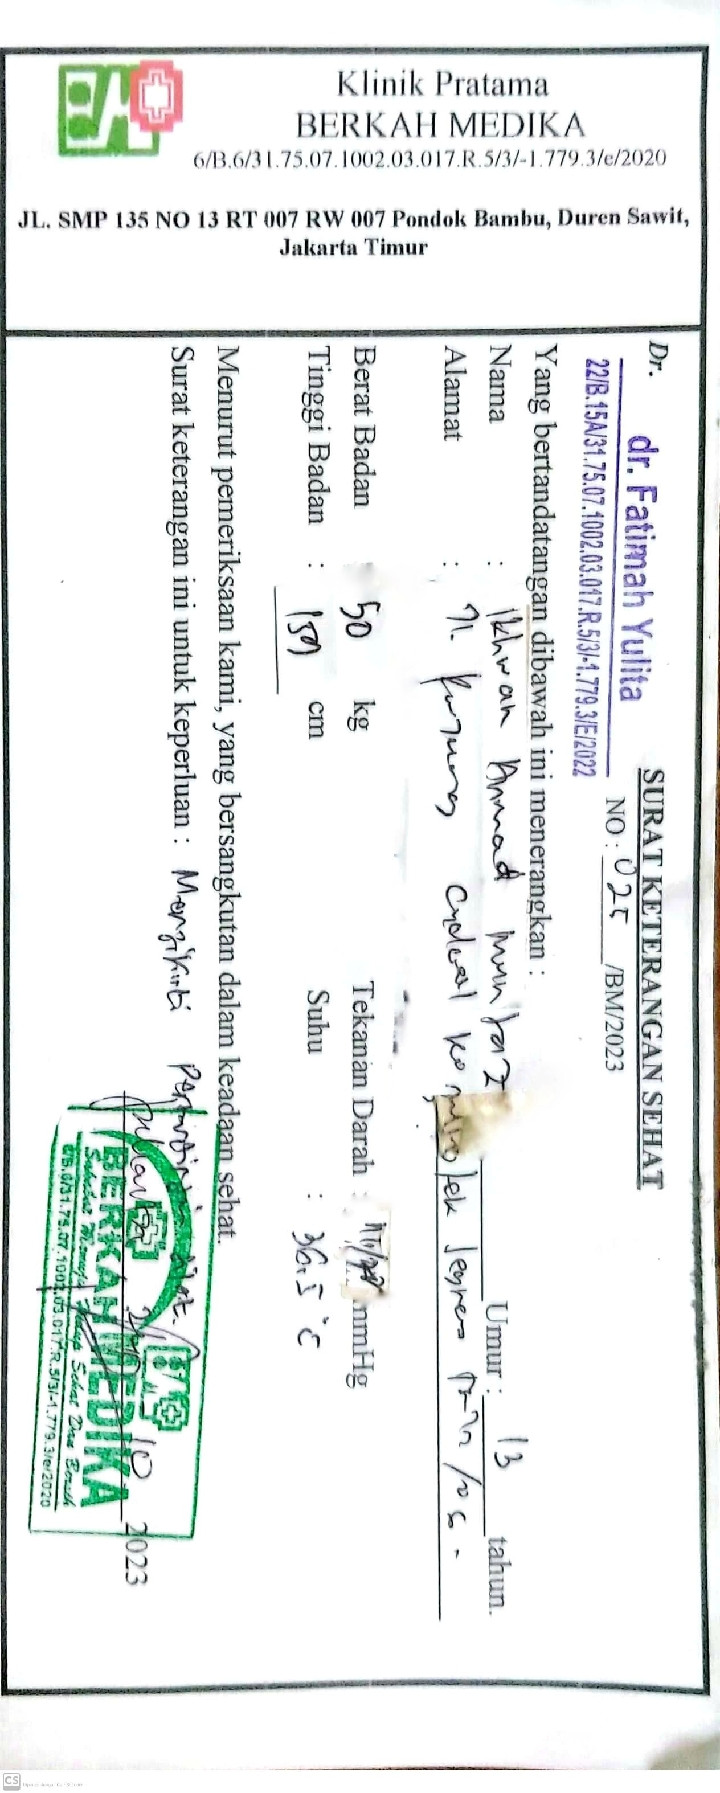 Klinik Pratama
BERKAH MEDIKA
6/B.6/31.75.07.1002.03.017.R.5/3/-1.779.3/e/2020
JL. SMP 135 NO 13 RT 007 RW 007 Pondok Bambu, Duren Sawit,
Jakarta Timur
SURAT KETERANGAN SEHAT
NO : 025 /BM/2023
Dr. dr. Fatimah Yulita
22/B.15A/31.75.07.1002.03.017.R.5/3/-1.779.3/E/2022
Yang bertandatangan dibawah ini menerangkan :
Nama : Ikhwan Ahmad Mumtaz Umur : 13 tahun.
Alamat : Jl.
Berat Badan : 50 kg Tekanan Darah : mmHg
Tinggi Badan : 159 cm Suhu : 36.5 °C
Menurut pemeriksaan kami, yang bersangkutan dalam keadaan sehat.
Surat keterangan ini untuk keperluan : Mengikuti
Jakarta 10 2023
BERKAH MEDIKA
6/B.6/31.75.07.1002.03.017.R.5/3/-1.779.3/e/2020
CS